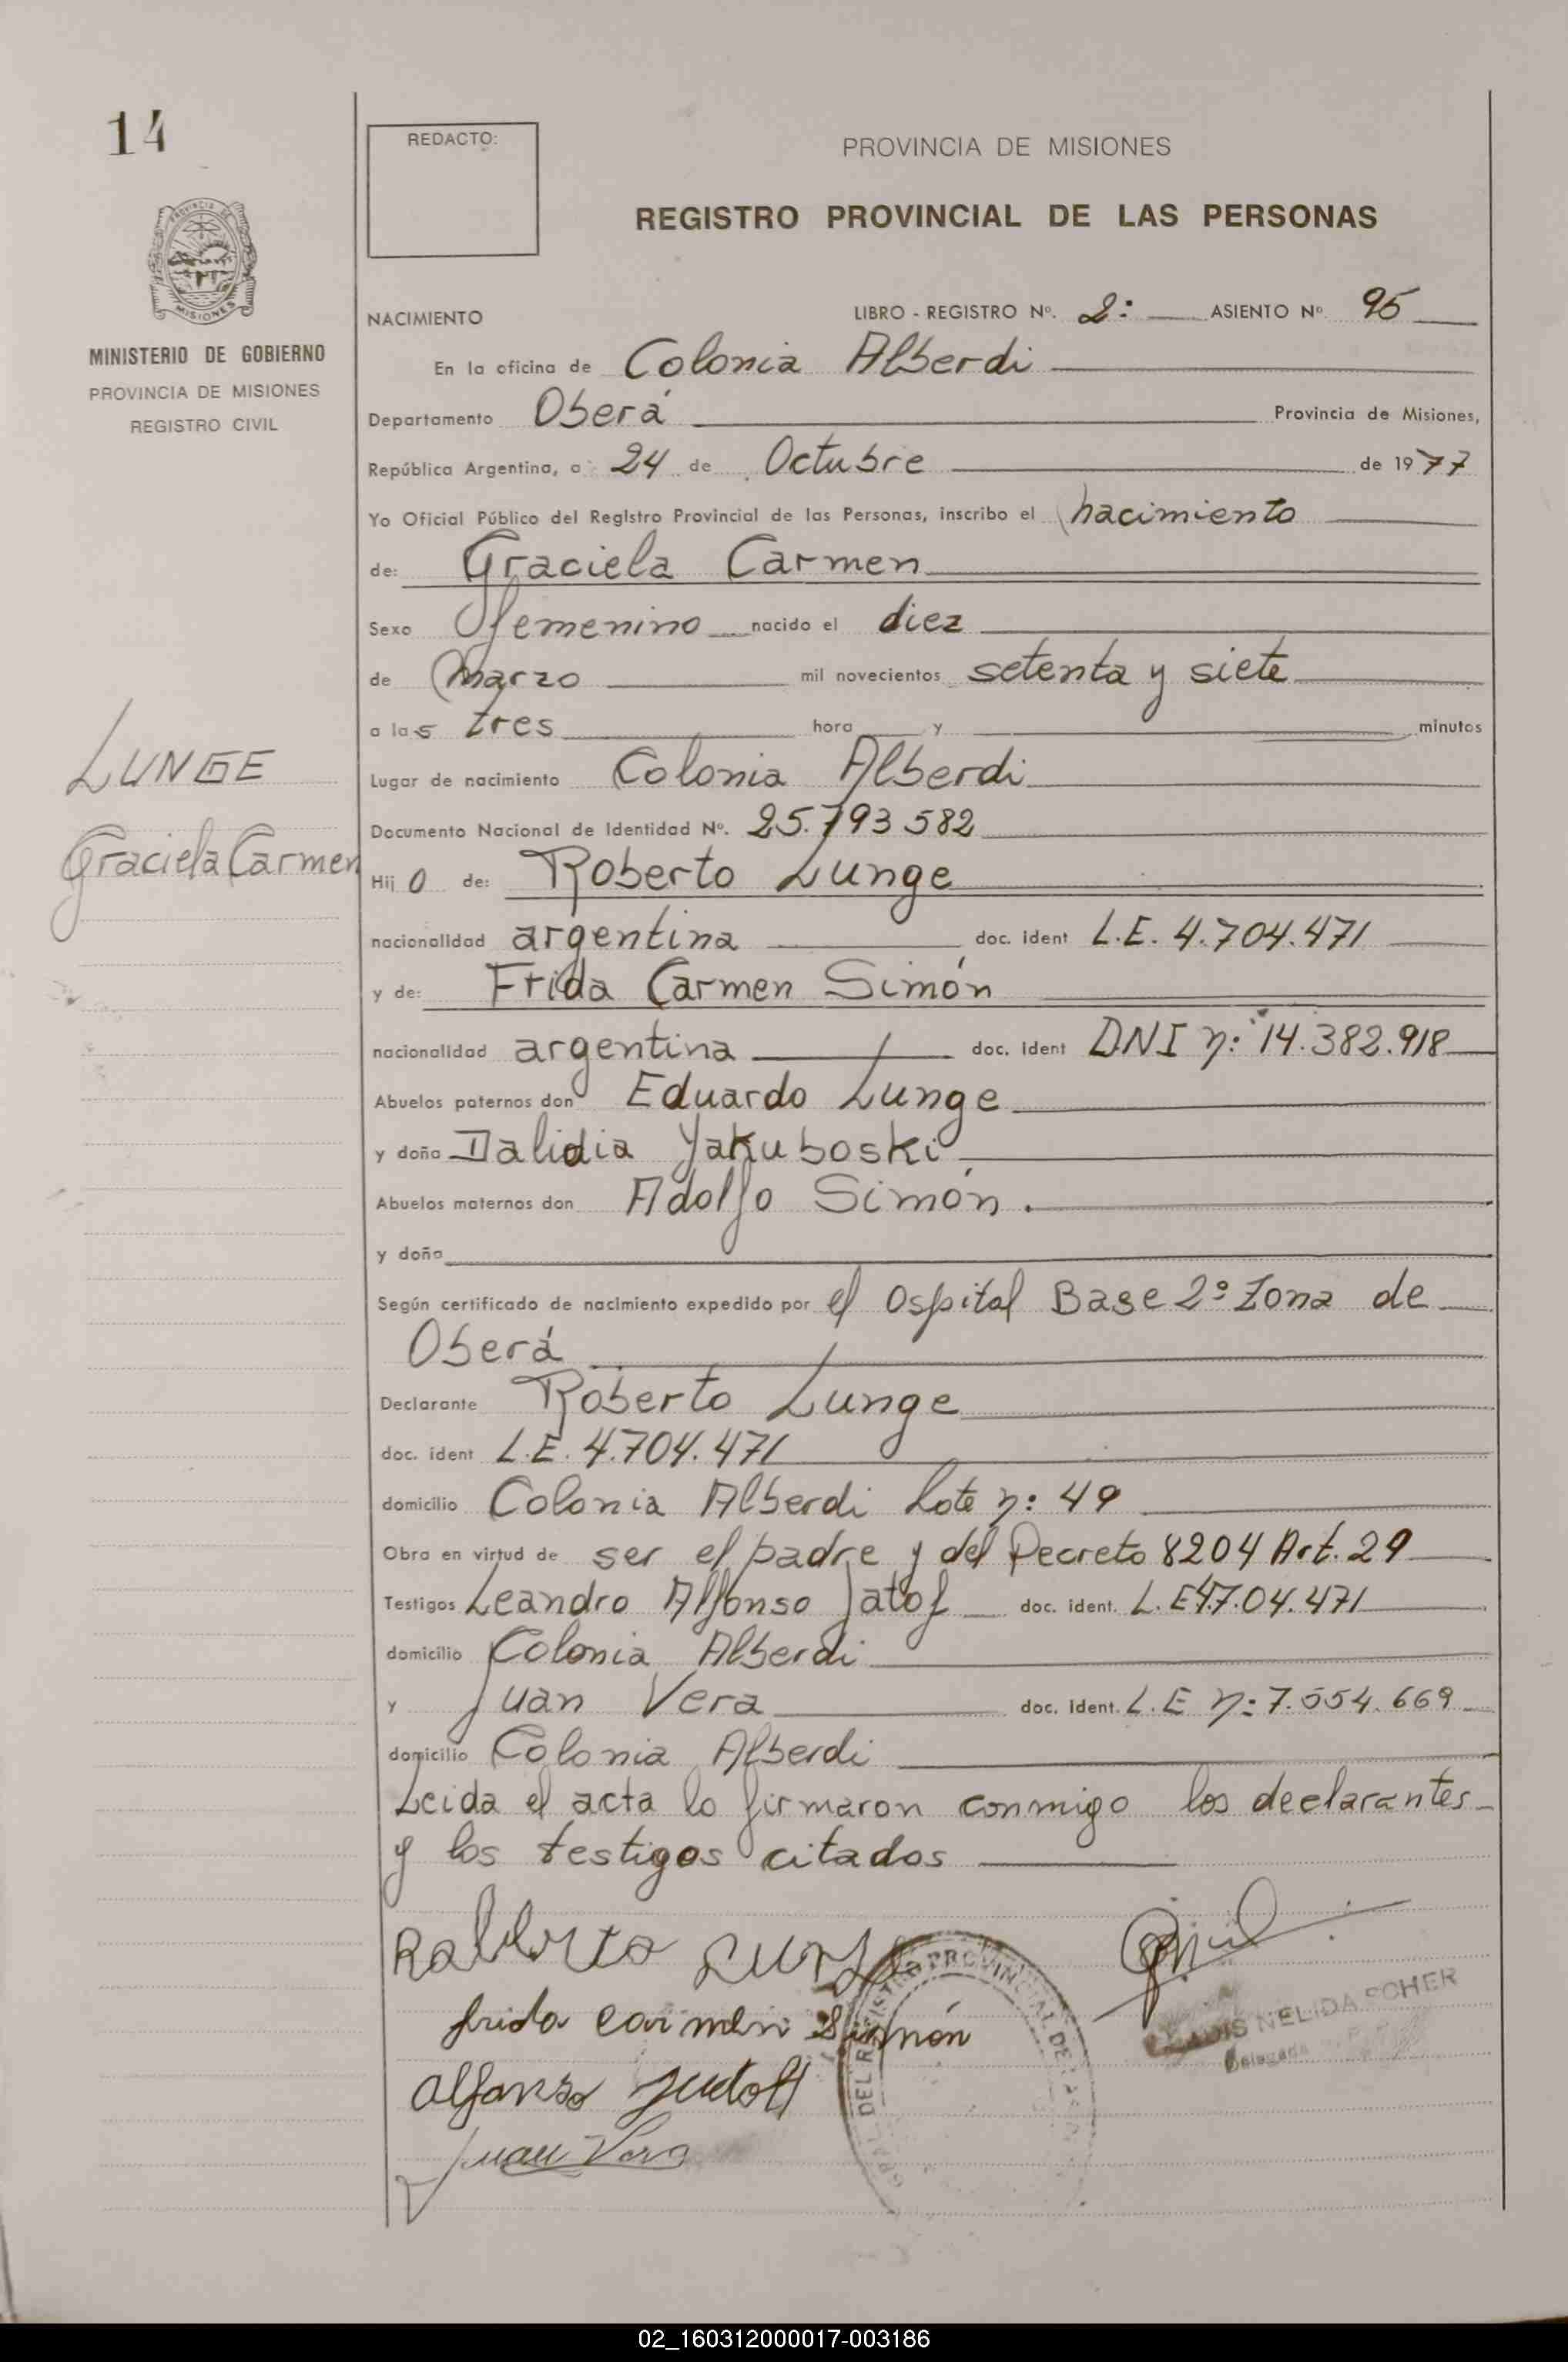 14
REDACTO:
PROVINCIA DE MISIONES
REGISTRO PROVINCIAL DE LAS PERSONAS
PROVINCIA DE
MISIONES
MINISTERIO DE GOBIERNO
PROVINCIA DE MISIONES
REGISTRO CIVIL
NACIMIENTO LIBRO - REGISTRO Nº. 2: ASIENTO Nº 95
En la oficina de Colonia Alberdi
Departamento Oberá Provincia de Misiones,
República Argentina, a 24 de Octubre de 1977
Yo Oficial Público del Registro Provincial de las Personas, inscribo el nacimiento
de: Graciela Carmen
Sexo femenino nacido el diez
de Marzo mil novecientos setenta y siete
a las tres hora y minutos
LUNGE
Graciela Carmen
Lugar de nacimiento Colonia Alberdi
Documento Nacional de Identidad Nº. 25.793582
Hij o de: Roberto Lunge
nacionalidad argentina doc. ident L.E. 4.704.471
y de: Frida Carmen Simón
nacionalidad argentina doc. ident DNI n: 14.382.918
Abuelos paternos don Eduardo Lunge
y doña Dalidia Yakuboski
Abuelos maternos don Adolfo Simón.
y doña
Según certificado de nacimiento expedido por el Ospital Base 2º Zona de
Oberá
Declarante Roberto Lunge
doc. ident L.E. 4.704.471
domicilio Colonia Alberdi Lote n: 49
Obra en virtud de ser el padre y del Decreto 8204 Art. 29
Testigos Leandro Alfonso Jatof doc. ident. L.E 4.7.04.471
domicilio Colonia Alberdi
y Juan Vera doc. ident. L.E n: 7.554.669
domicilio Colonia Alberdi
Leida el acta lo firmaron conmigo los declarantes
y los testigos citados
frida carmen Simón
Alfonso
Juan Vera
DEL REGISTRO PROVINCIAL DE LAS
NELIDA SCHER
Delegada
02_160312000017-003186